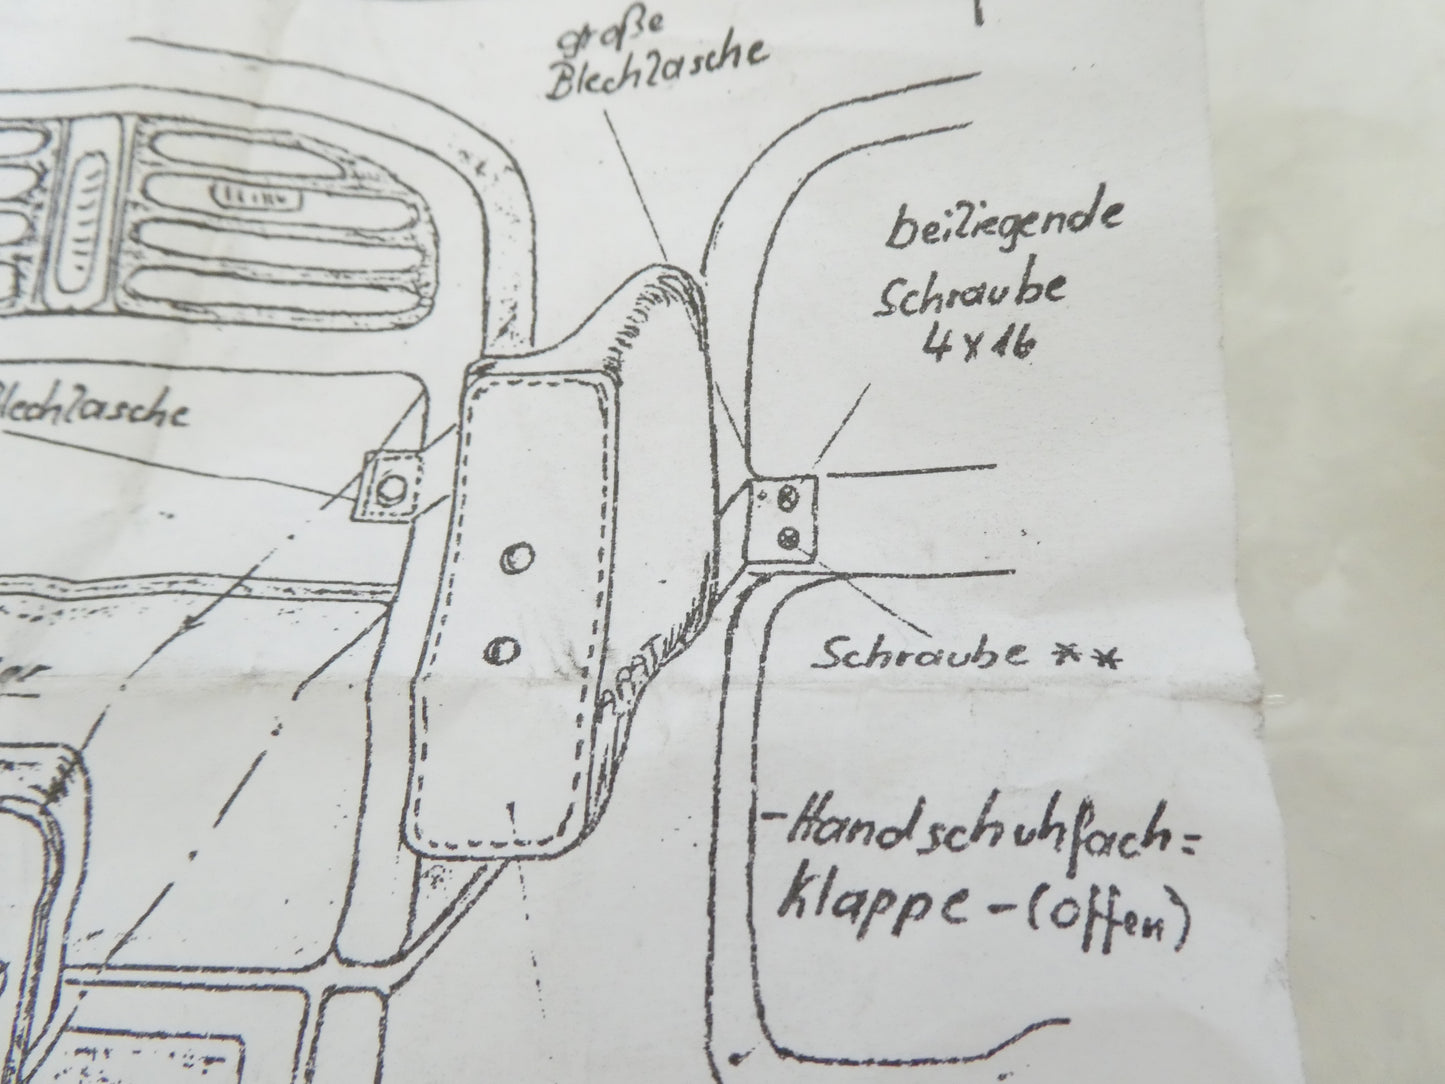 große
Blechlasche
beiliegende
Schraube
4x16
Blechlasche
Schraube **
-Handschuhfach=
klappe-(offen)